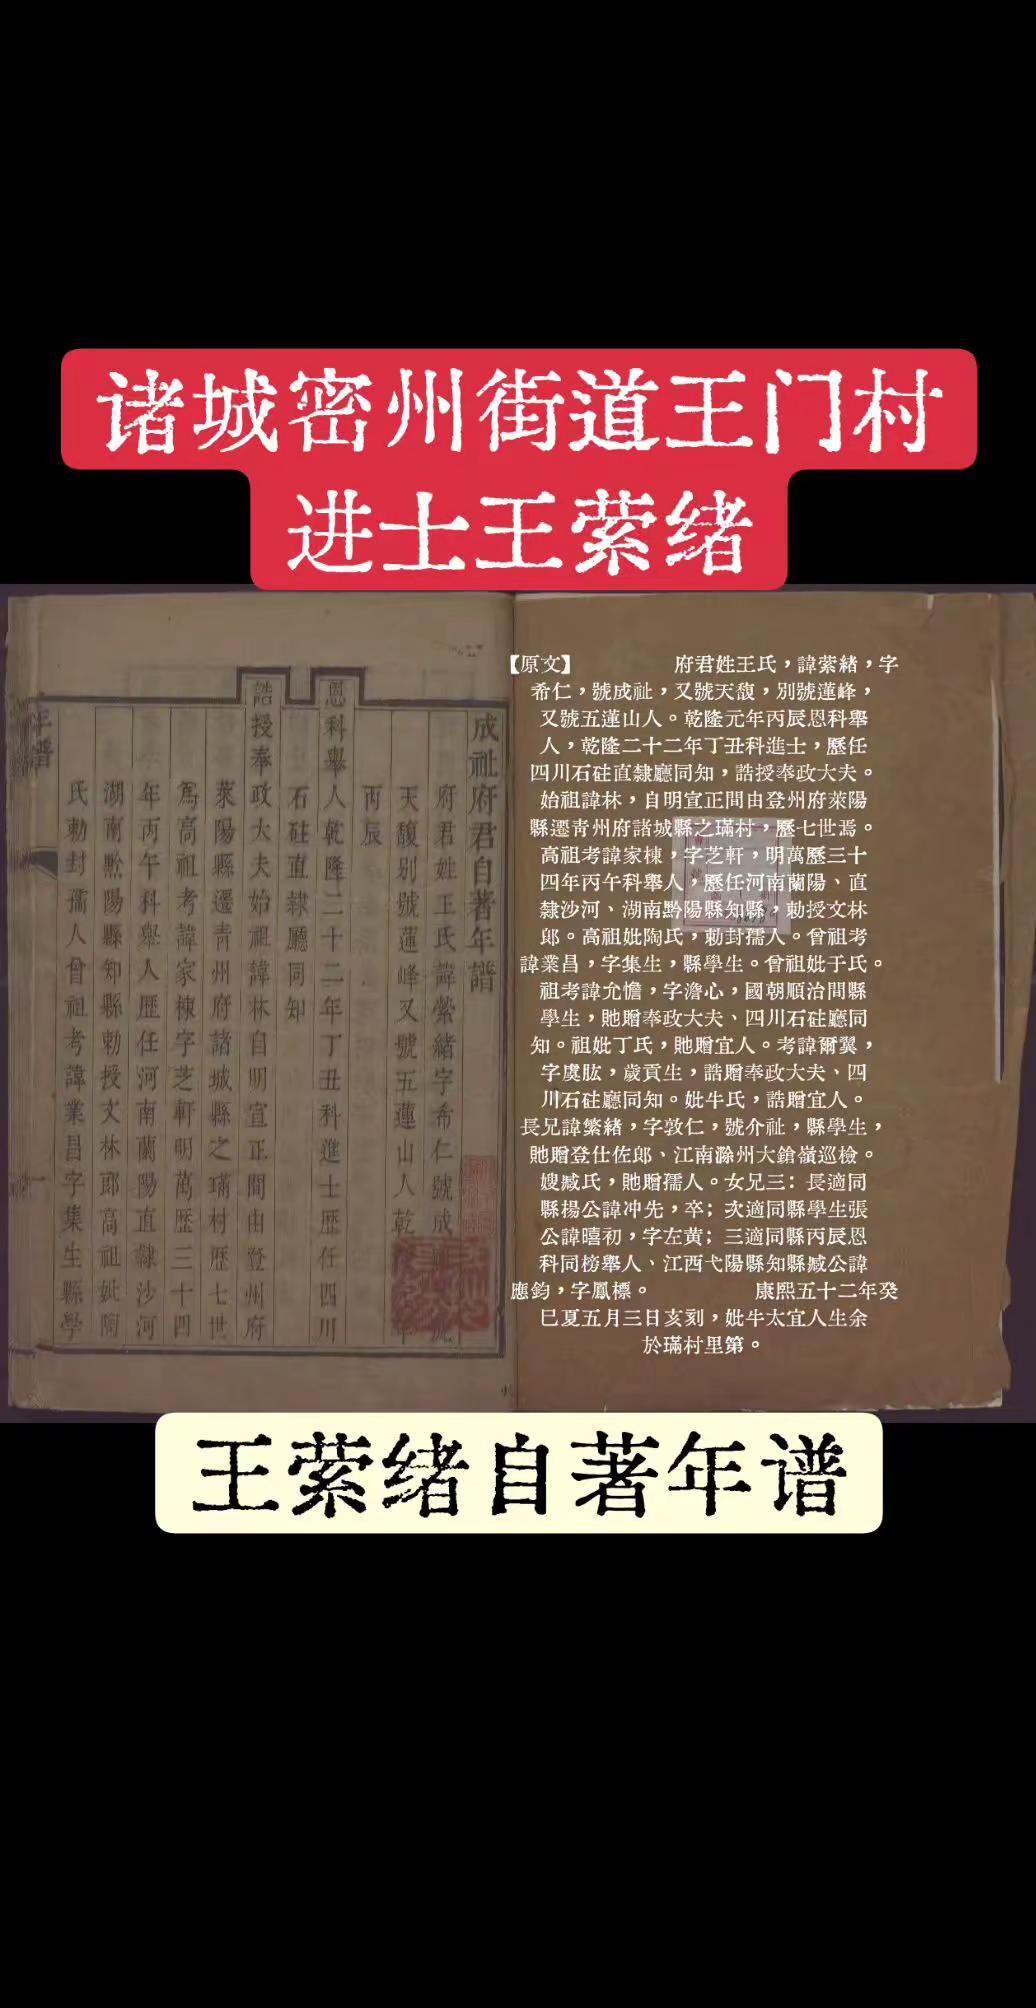 诸城密州街道王门村
进士王萦绪
【原文】 府君姓王氏，諱縈緒，字
希仁，號成祉，又號天馥，別號蓮峰，
又號五蓮山人。乾隆元年丙辰恩科舉
人，乾隆二十二年丁丑科進士，歷任
四川石砫直隸廳同知，誥授奉政大夫。
始祖諱林，自明宣正間由登州府萊陽
縣遷青州府諸城縣之璊村，歷七世焉。
高祖考諱家棟，字芝軒，明萬歷三十
四年丙午科舉人，歷任河南蘭陽、直
隸沙河、湖南黔陽縣知縣，勅授文林
郎。高祖妣陶氏，勅封孺人。曾祖考
諱業昌，字集生，縣學生。曾祖妣于氏。
祖考諱允憺，字澹心，國朝順治間縣
學生，貤贈奉政大夫、四川石砫廳同
知。祖妣丁氏，貤贈宜人。考諱爾翼，
字虞肱，歲貢生，誥贈奉政大夫、四
川石砫廳同知。妣牛氏，誥贈宜人。
長兄諱繁緒，字敦仁，號介祉，縣學生，
貤贈登仕佐郎、江南滁州大鎗嶺巡檢。
嫂臧氏，貤贈孺人。女兄三：長適同
縣楊公諱冲先，卒；次適同縣學生張
公諱曔初，字左黄；三適同縣丙辰恩
科同榜舉人、江西弋陽縣知縣臧公諱
應鈞，字鳳標。 康熙五十二年癸
巳夏五月三日亥刻，妣牛太宜人生余
於璊村里第。
成祉府君自著年譜
府君姓王氏諱縈緒字希仁號成
天馥别號蓮峰又號五蓮山人乾
丙辰
恩科舉人乾隆二十二年丁丑科進士歷任四川
石砫直隸廳同知
誥授奉政大夫始祖諱林自明宣正間由登州府
萊陽縣遷青州府諸城縣之璊村歷七世
焉高祖考諱家棟字芝軒明萬歷三十四
年丙午科舉人歷任河南蘭陽直隸沙河
湖南黔陽縣知縣勅授文林郎高祖妣陶
氏勅封孺人曾祖考諱業昌字集生縣學
年譜
王萦绪自著年谱